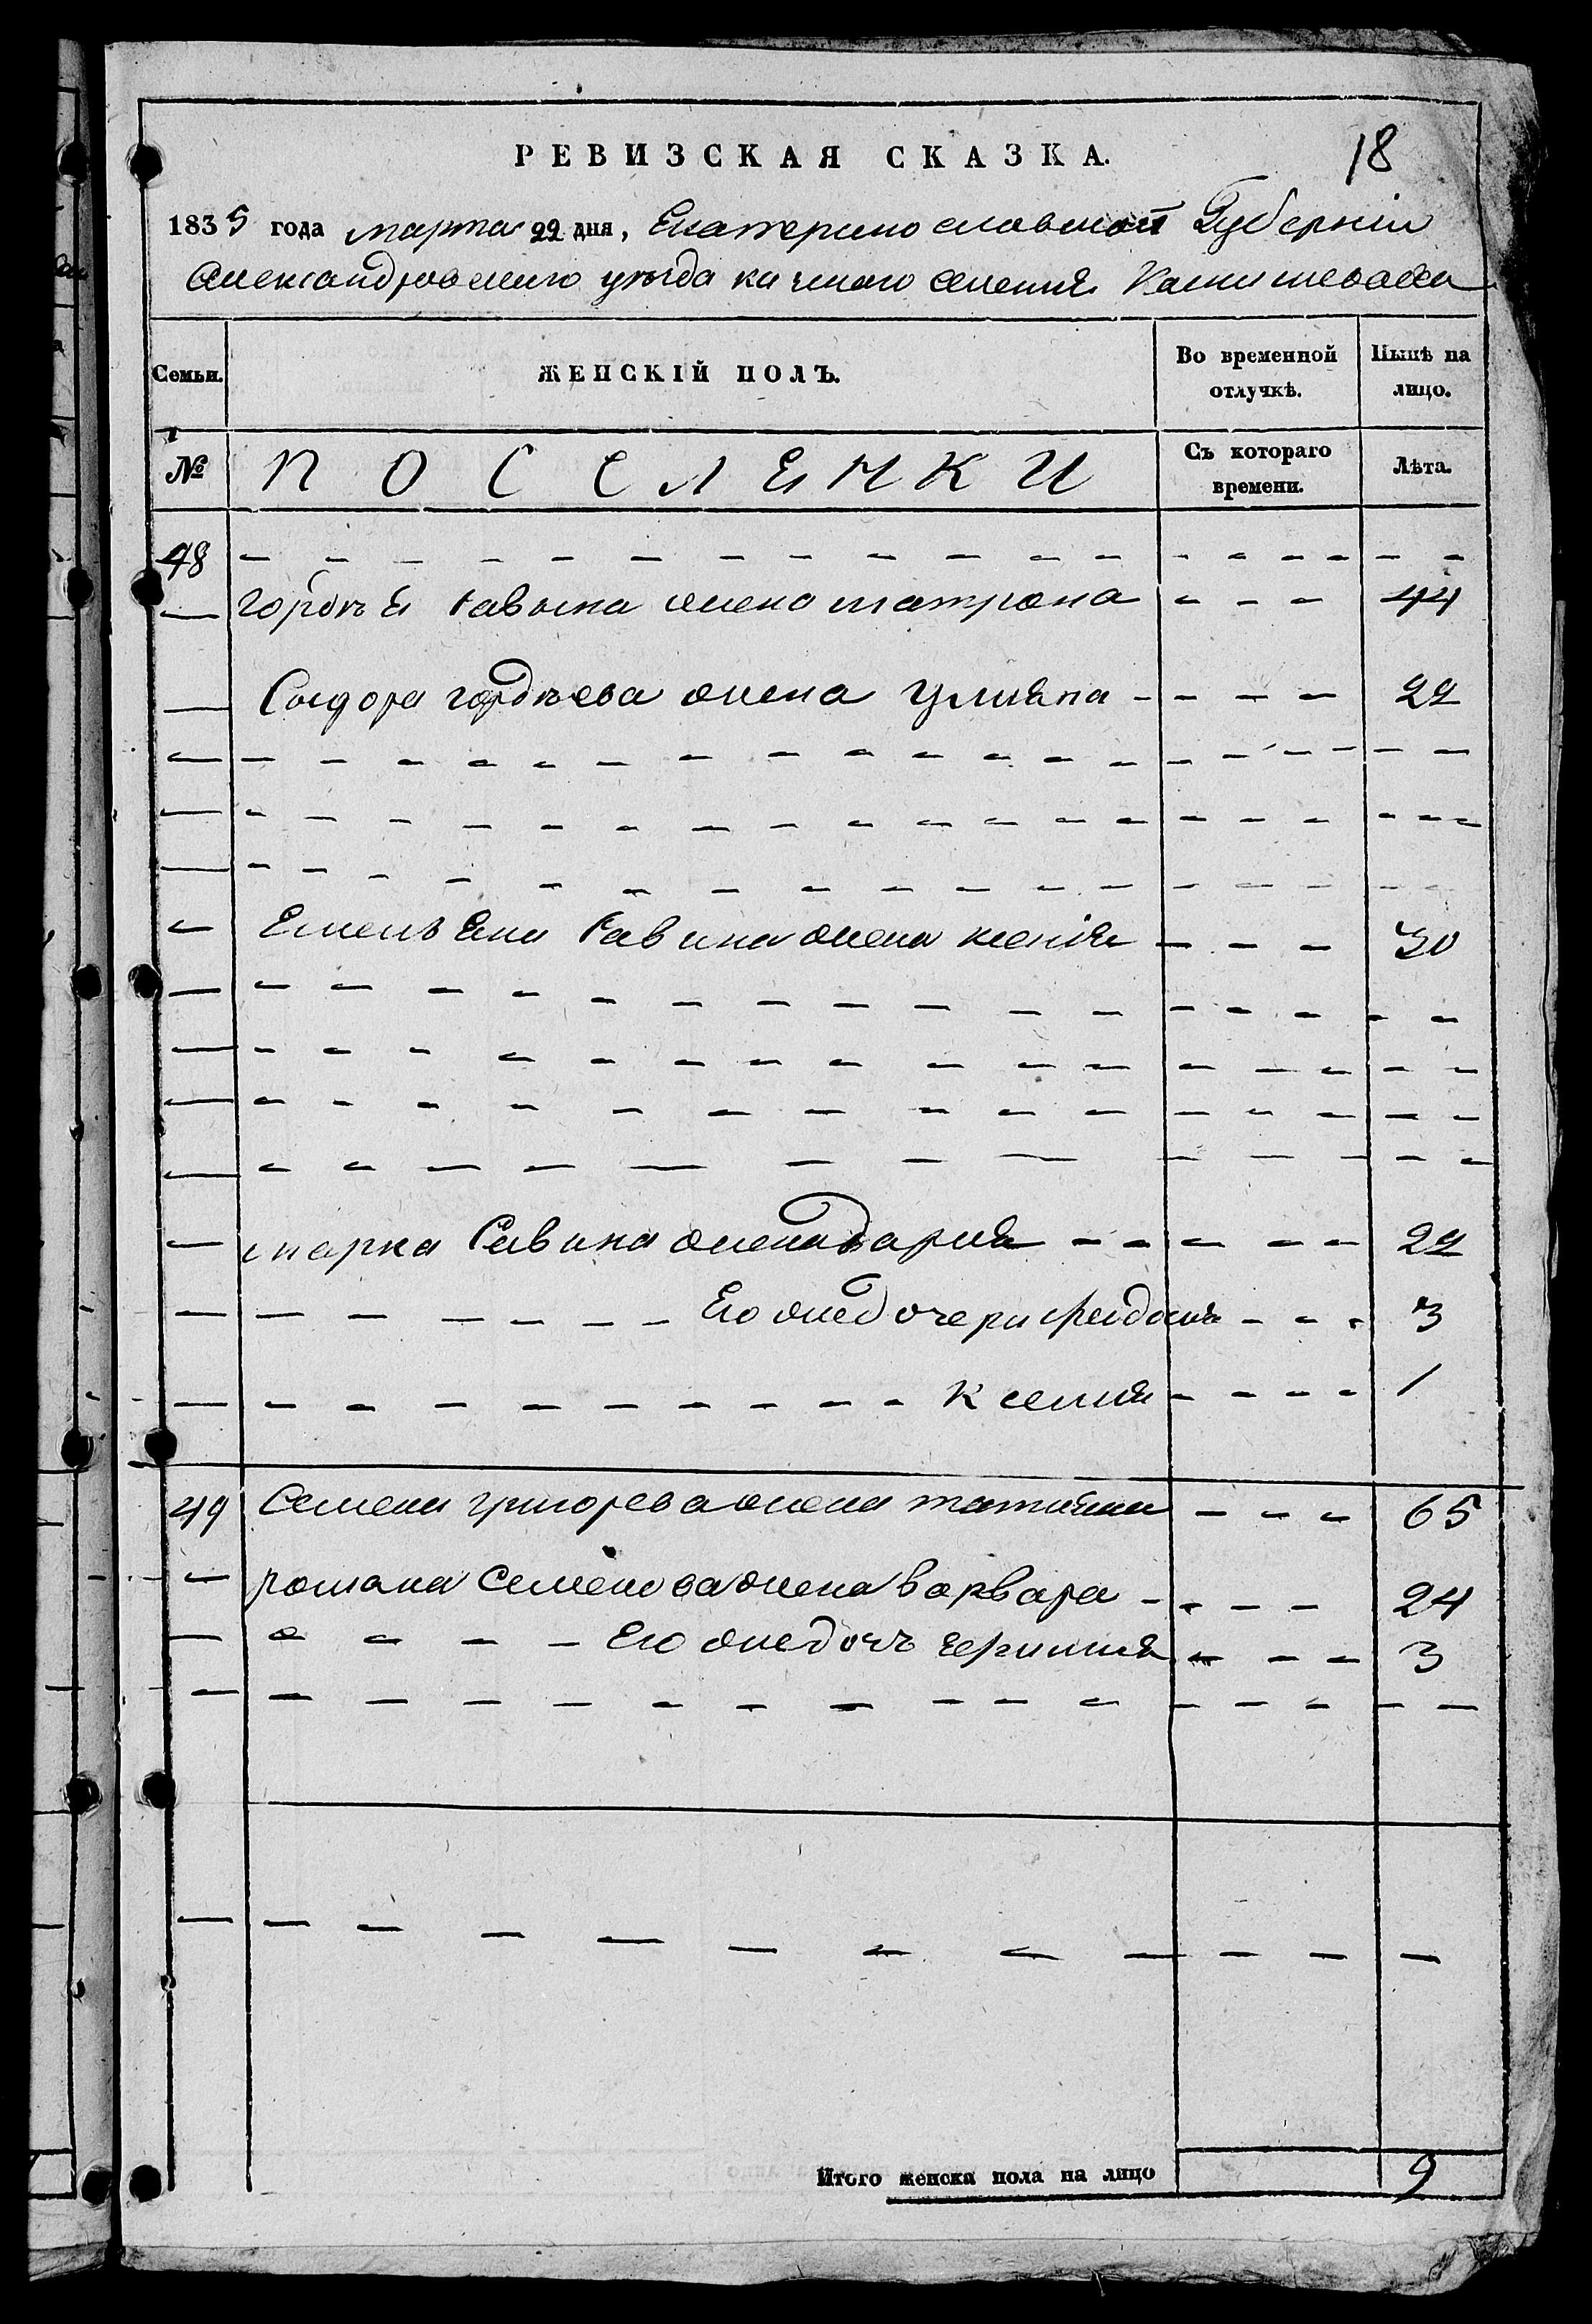 РЕВИЗСКАЯ СКАЗКА.
18
1835 года марта 22 дня, Екатеринославской Губерніи
Александровского уезда казенного селения Камишеваха
Семьи.
ЖЕНСКІЙ ПОЛЪ.
Во временной отлучкѣ.
Нынѣ на лицо.
№
ПОСЕЛЕНКИ
Съ котораго времени.
Лѣта.
48
гордѣя савына жена матрона 44
Сыдора гордѣева жена Улияна 22
Емельяна Савина жена ксенія 30
марка Савина жена дария 22
Его же дочери 3
Ксения 1
49 Семена григорева жена татияна 65
романа Семенова жена варвара 24
Его же дочь 3
Итого женска пола на лицо 9